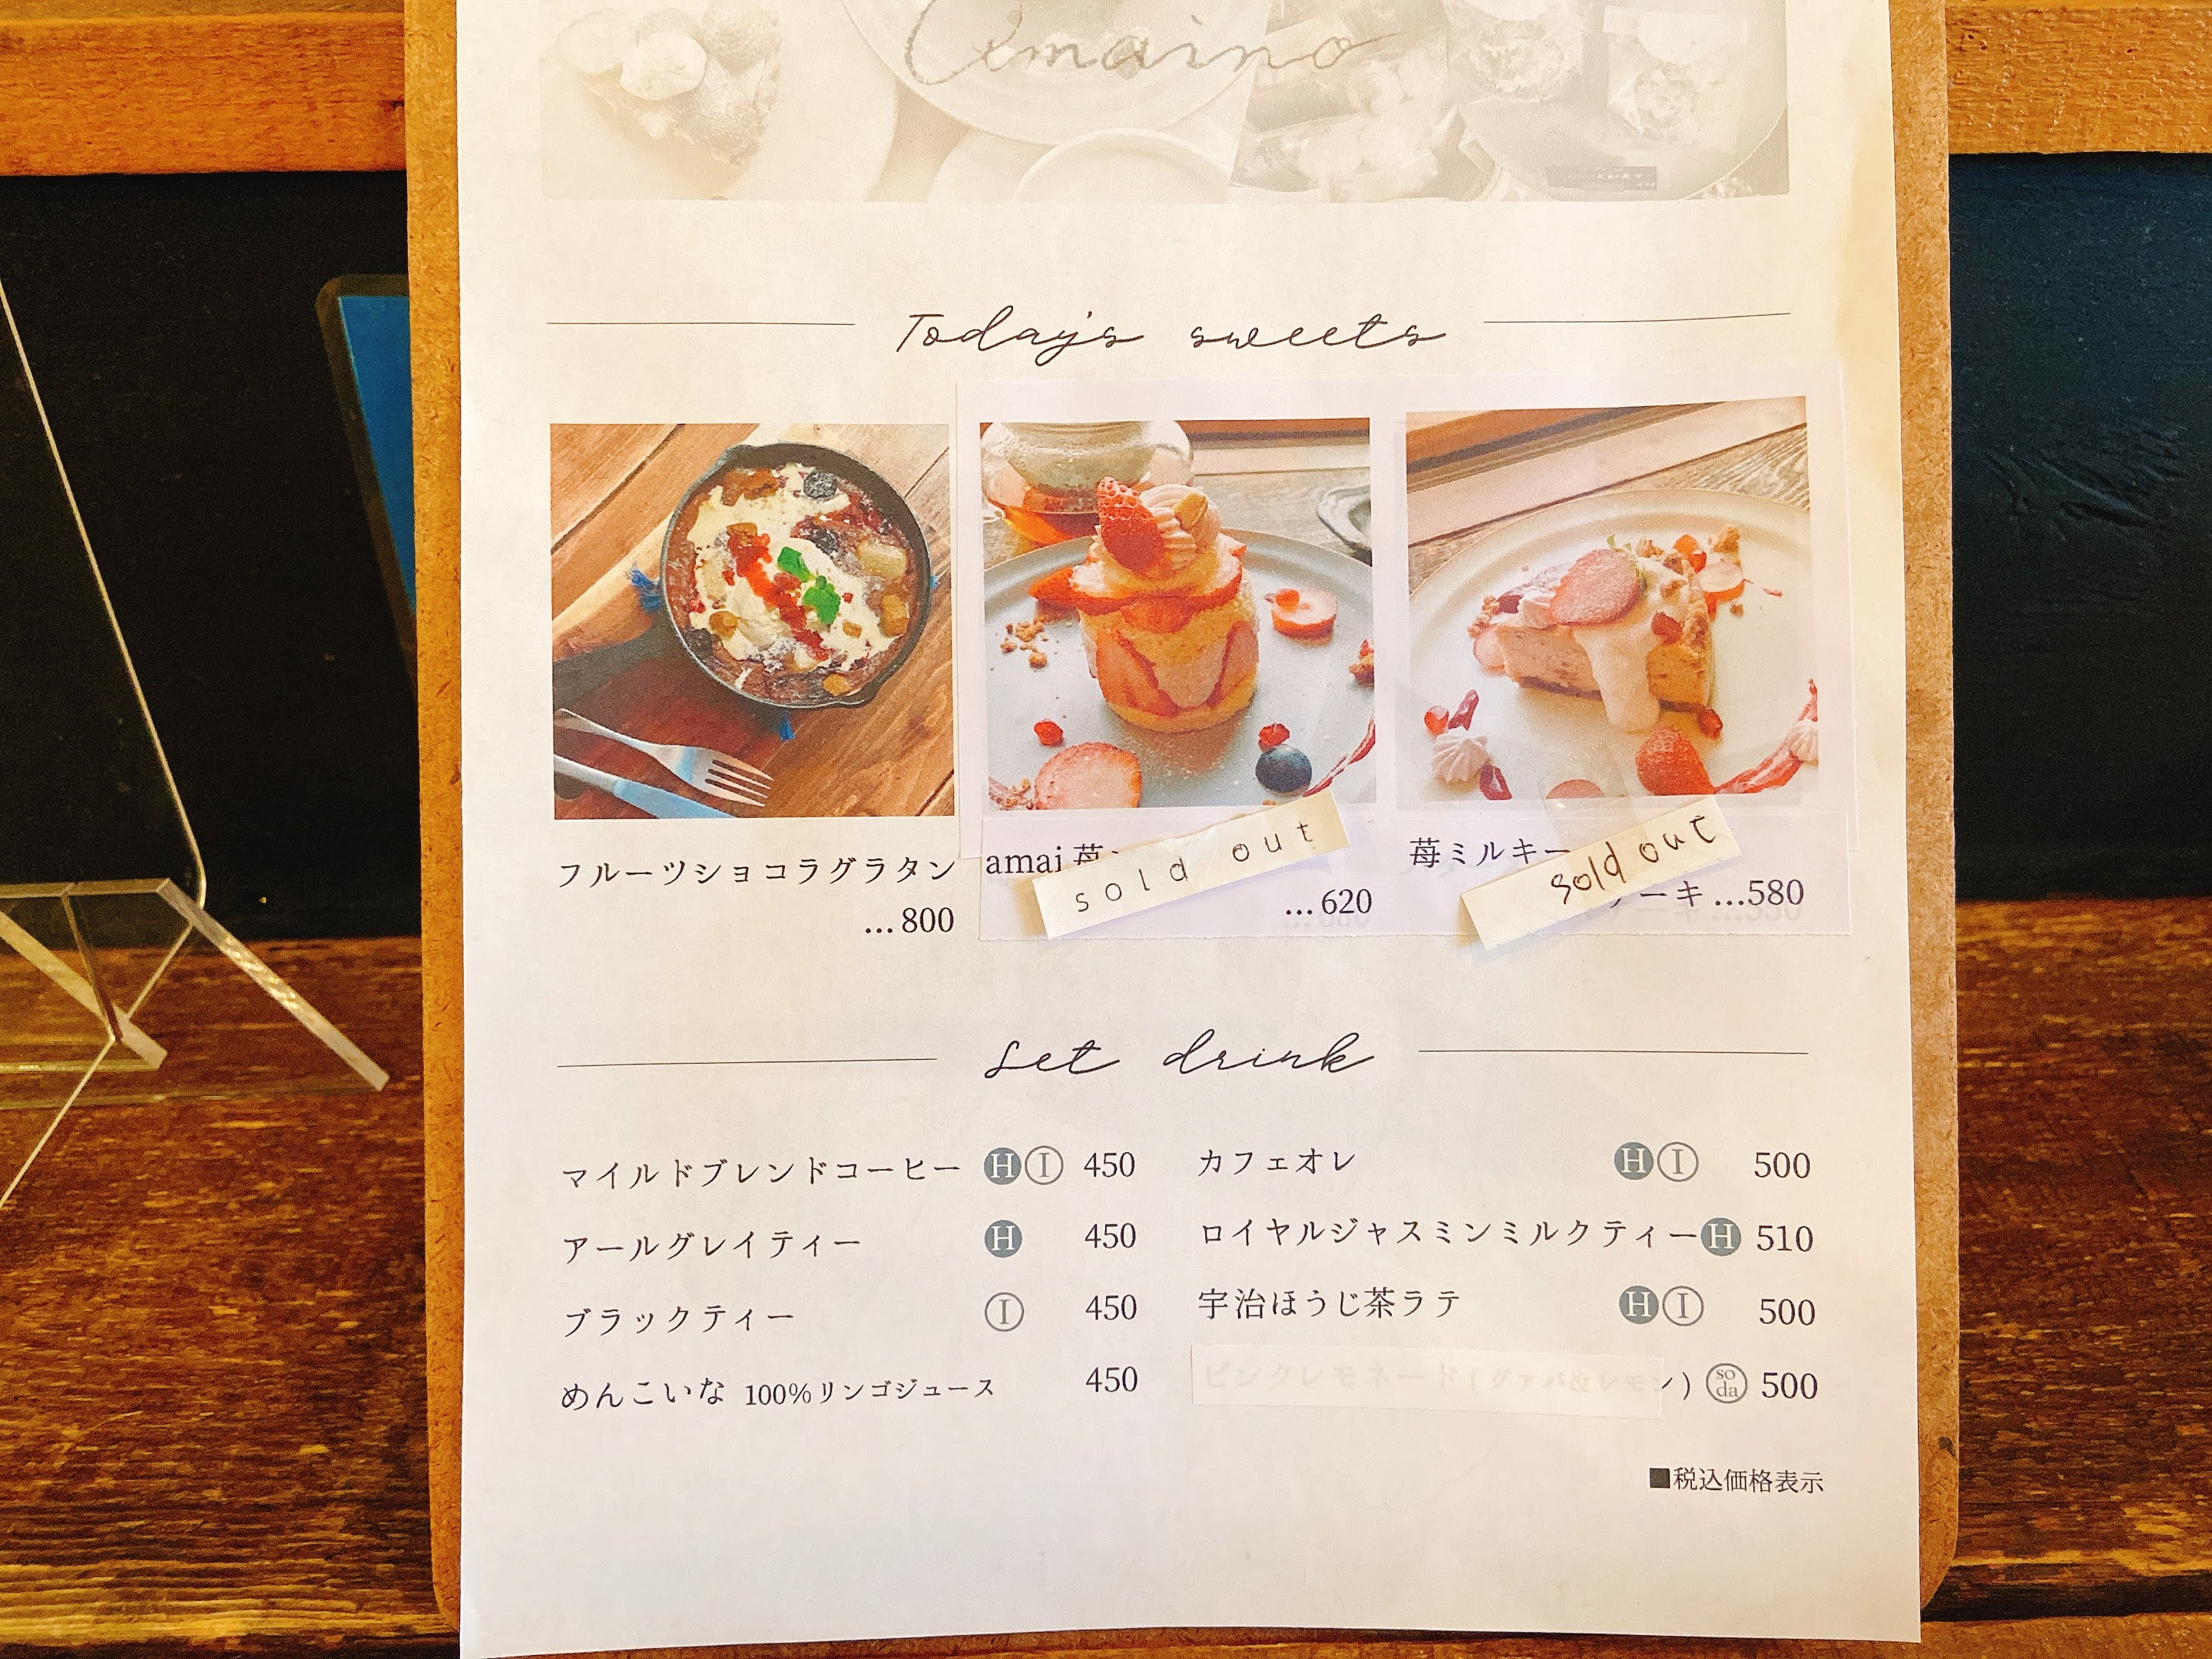 Amaino
Today's sweets
フルーツショコラグラタン
...800
amai 苺
sold out
...620
苺ミルキー
sold out
ーキ ...580
Set drink
マイルドブレンドコーヒー H I 450
アールグレイティー H 450
ブラックティー I 450
めんこいな 100%リンゴジュース 450
カフェオレ H I 500
ロイヤルジャスミンミルクティー H 510
宇治ほうじ茶ラテ H I 500
ピンクレモネード ( グァバ&レモン ) soda 500
■税込価格表示